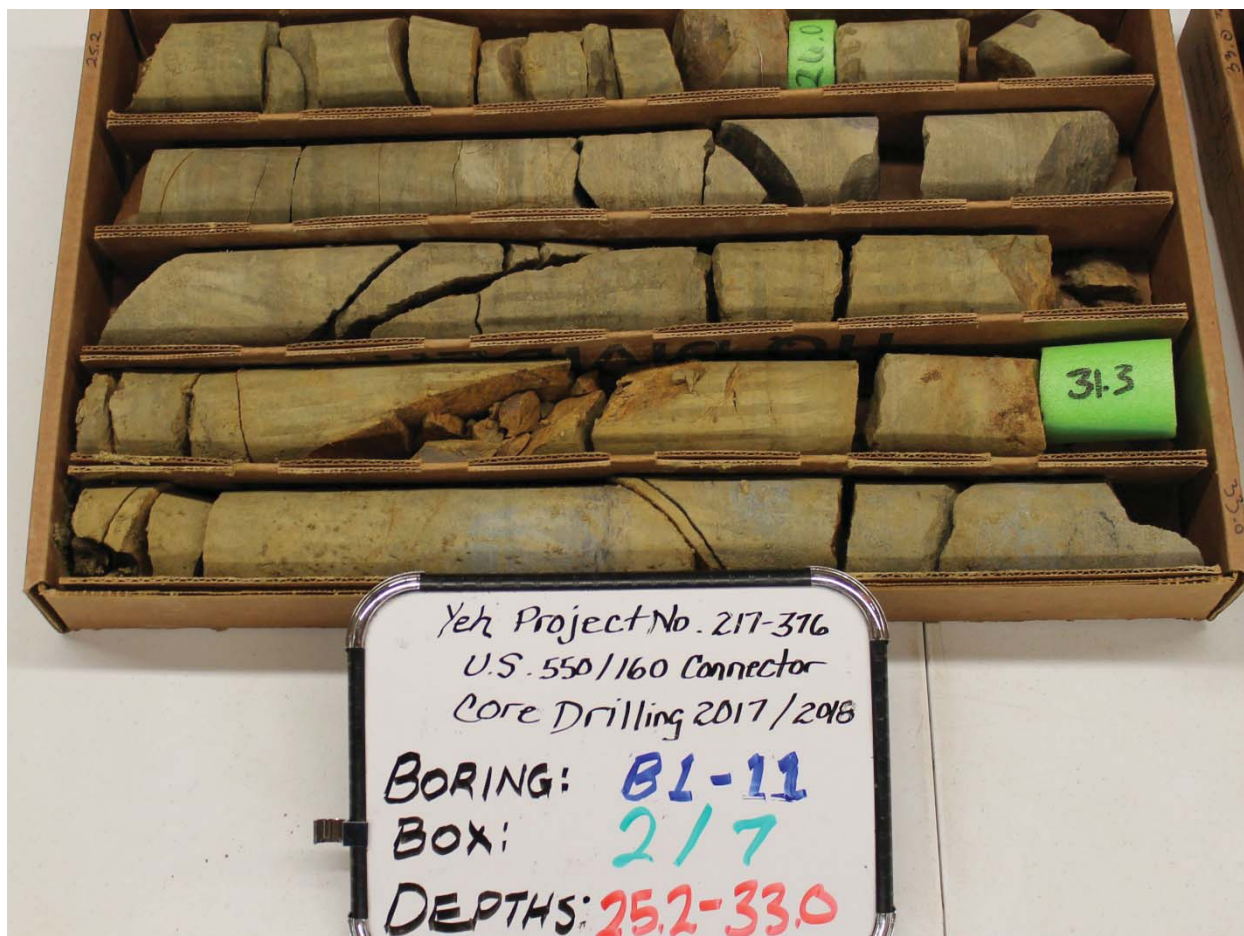 25.2
26.0
33.0
31.3
33.0
Yeh Project No. 217-376
U.S. 550/160 Connector
Core Drilling 2017/2018
BORING: B1-11
BOX: 2/7
DEPTHS: 25.2-33.0